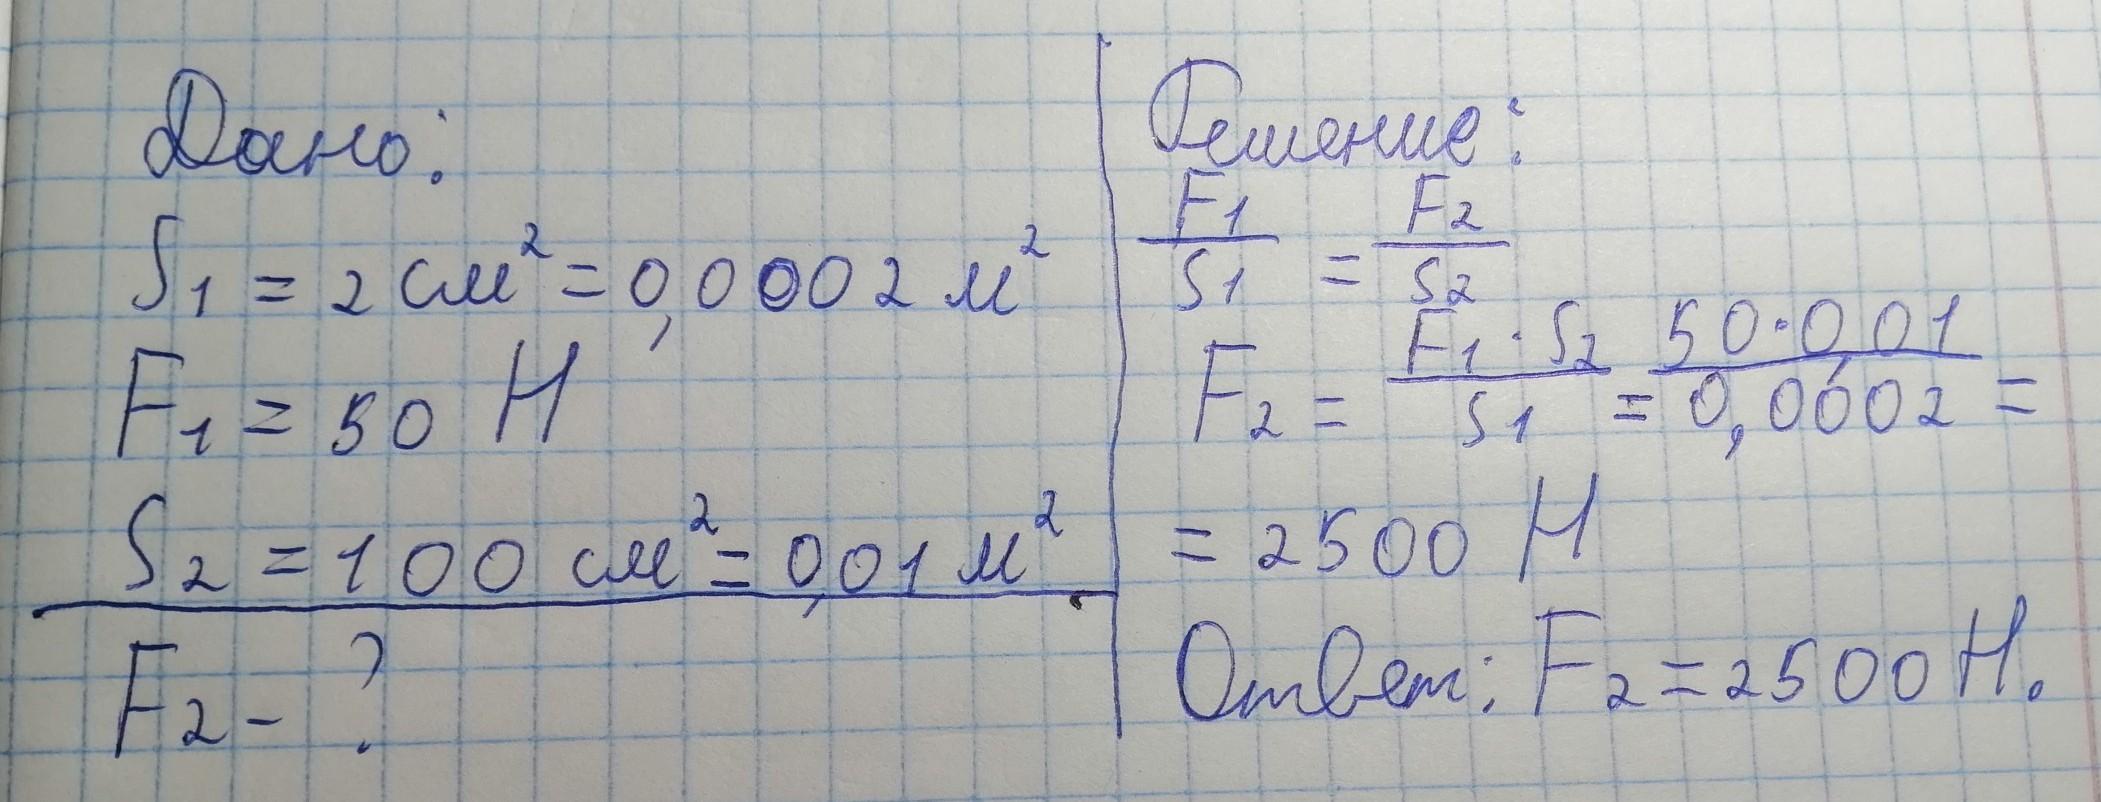 Дано:
S1 = 2 см² = 0,0002 м²
F1 = 50 Н
S2 = 100 см² = 0,01 м²
F2 - ?
Решение:
F1/S1 = F2/S2
F2 = F1 · S2/S1 = 50 · 0,01/0,0002 =
= 2500 Н
Ответ: F2 = 2500 Н.